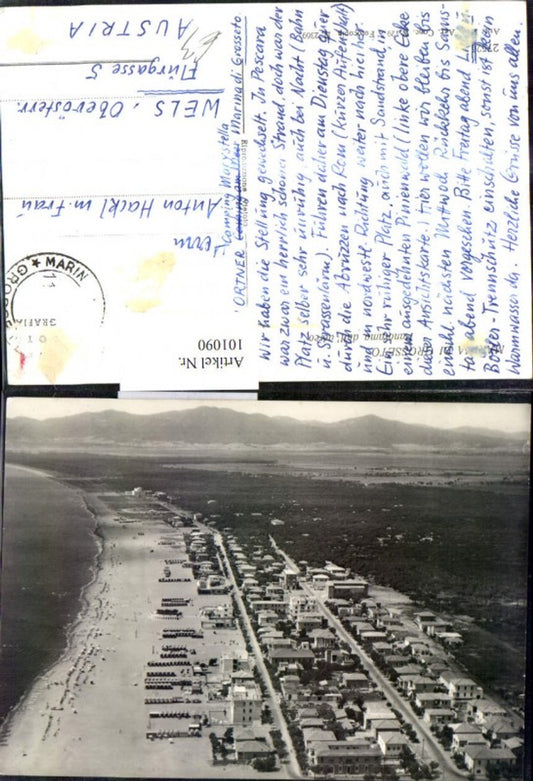 wir haben die Stellung gewechselt. In Pescara
war zwar ein herrlich schöner Strand, doch war der
Platz selber sehr unruhig auch bei Nacht (Bahn
u. Strassenlärm). Fuhren daher am Dienstag quer
durch die Abruzzen nach Rom (kurzer Aufenthalt)
und in nordwestl. Richtung weiter nach hier her.
Ein sehr ruhiger Platz auch mit Sandstrand, in
einem ausgedehnten Pinienwald (linke obere Ecke
dieser Ansichtskarte). Hier wollen wir bleiben bis
nächsten Mittwoch. Rückkehr bis Sams-
tag abend vorgesehen. Bitte Freitag abend
einschalten, sonst ist kein
Warmwasser da. Herzliche Grüsse von uns allen.
ORTNER
Camping
Marina di Grosseto
MARIN
GRAFIA
Artikel Nr.
101090
Herrn
Anton Hackl m. Frau
WELS, Oberösterr.
Flurgasse 5
AUSTRIA